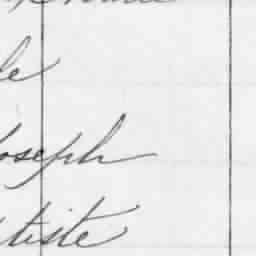 le
Joseph
tiste